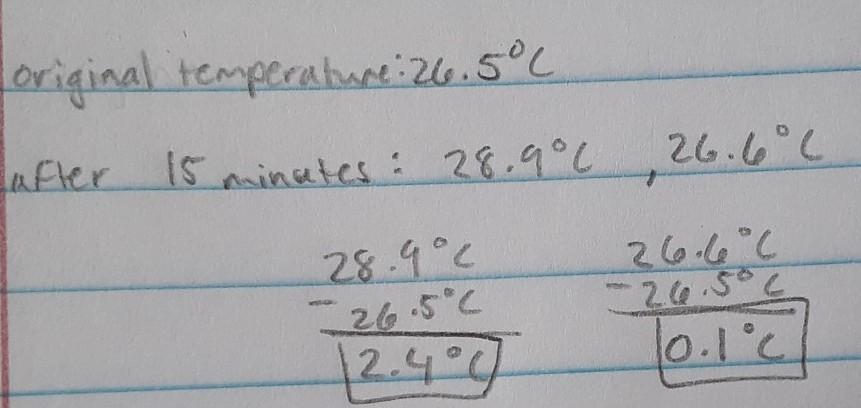 original temperature: 26.5°C
after 15 minutes: 28.9°C, 26.6°C
28.9°C 26.6°C
-26.5°C -26.5°C
2.4°C 0.1°C